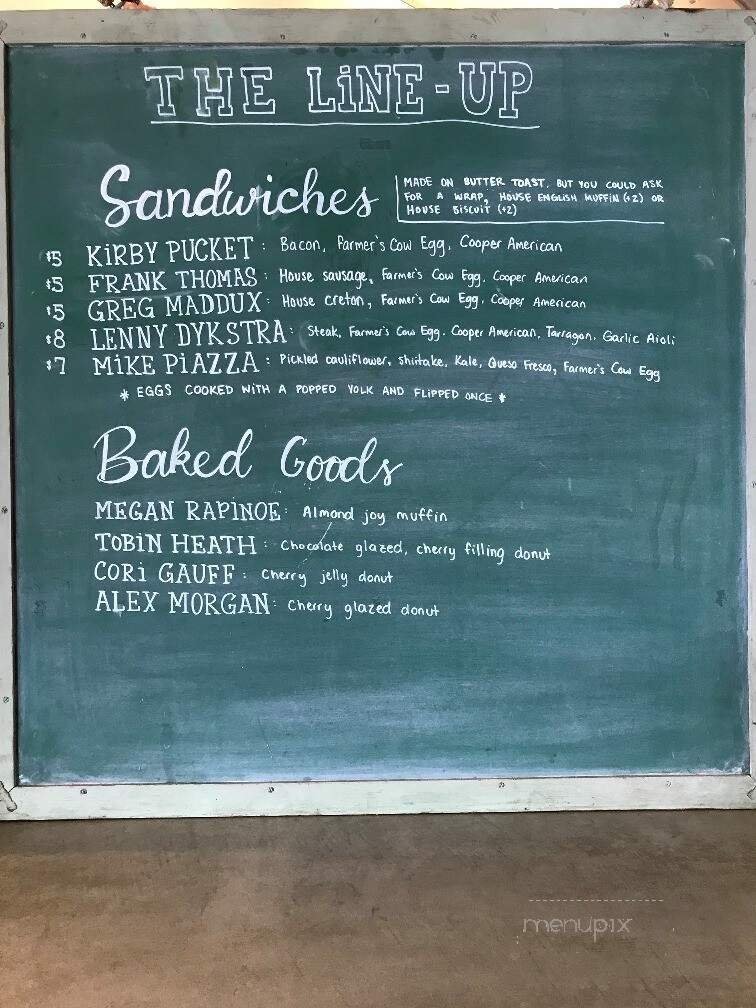 THE LiNE-UP
Sandwiches
MADE ON BUTTER TOAST, BUT YOU COULD ASK
FOR A WRAP, HOUSE ENGLISH MUFFIN (+2) OR
HOUSE BISCUIT (+2)
$5 KiRBY PUCKET: Bacon, Farmer's Cow Egg, Cooper American
$5 FRANK THOMAS: House sausage, Farmer's Cow Egg, Cooper American
$5 GREG MADDUX: House creton, Farmer's Cow Egg, Cooper American
$8 LENNY DYKSTRA: Steak, Farmer's Cow Egg, Cooper American, Tarragon, Garlic Aioli
$7 MiKE PiAZZA: Pickled cauliflower, shiitake, Kale, Queso Fresco, Farmer's Cow Egg
* EGGS COOKED WITH A POPPED YOLK AND FLIPPED ONCE *
Baked Goods
MEGAN RAPiNOE: Almond joy muffin
TOBiN HEATH: Chocolate glazed, cherry filling donut
CORi GAUFF: Cherry jelly donut
ALEX MORGAN: Cherry glazed donut
menupix